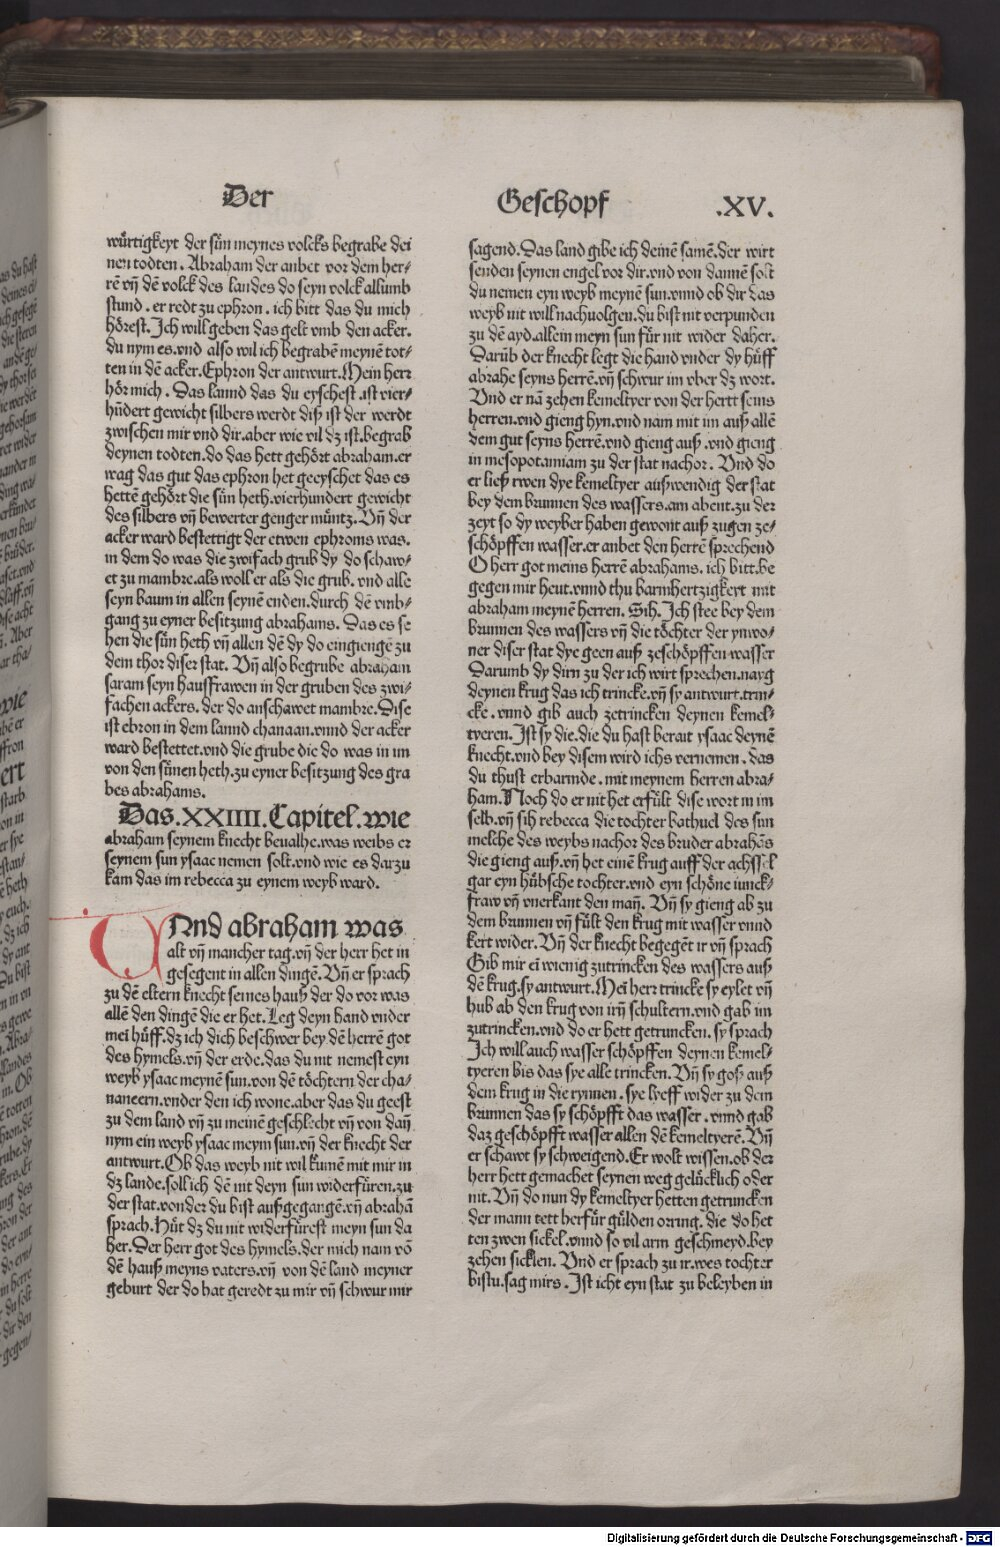 Der
Geschopf
.XV.
würtigkeyt der sün meynes volcks begrabe dei
nen todten. Abraham der anbet vor dem her/
rē vn̄ dē volck des landes do seyn volck allumb
stund. er redt zu ephron. ich bitt das du mich
hörest. Jch will geben das gelt vmb den acker.
du nym es.vnd also wil ich begrabē meynē tot/
ten in dē acker. Ephron der antwurt. Mein herr
hör mich. Das lannd das du eyschest.ist vier/
hūdert gewicht silbers werdt diß ist der werdt
zwischen mir vnd dir.aber wie vil dz ist.begrab
deynen todten.do das hett gehört abraham.er
wag das gut das ephron het geeyschet das es
hettē gehört die sün heth.vierhundert gewicht
des silbers vn̄ bewerter genger müntz. Vn̄ der
acker ward bestettigt der etwen ephroms was.
in dem do was die zwifach grub dy do schaw/
et zu mambre.als woll er als die grub. vnd alle
seyn baum in allen seynē enden.durch dē vmb/
gang zu eyner besitzung abrahams. Das es se
hen die sün heth vn̄ allen dē dy do eingiengē zu
dem thor diser stat. Vn̄ also begrube abraham
saram seyn haussfrawen in der gruben des zwi/
fachen ackers. der do anschawet mambre. Dise
ist ebron in dem lannd chanaan.vnnd der acker
ward bestettet.vnd die grube die do was in im
von den sünen heth.zu eyner besitzung des gra
bes abrahams.
Das.XXIIII.Capitel.wie
abraham seynem knecht beualhe.was weibs er
seynem sun ysaac nemen solt.vnd wie es darzu
kam das im rebecca zu eynem weyb ward.
Vnd abraham was
alt vn̄ mancher tag.vn̄ der herr het in
gesegent in allen dingē. Vn̄ er sprach
zu dē eltern knecht seines hauß der do vor was
allē den dingē die er het. Leg deyn hand vnder
mei hüff.dz ich dich beschwer bey dē herrē got
des hymels.vn̄ der erde.das du nit nemest eyn
weyb ysaac meynē sun.von dē töchtern der cha/
naneern.vnder den ich wone.aber das du geest
zu dem land vn̄ zu meinē geschlecht vn̄ von dan̄
nym ein weyb ysaac meym sun.vn̄ der knecht der
antwurt. Ob das weyb nit wil kumē mit mir in
dz lande.soll ich dē nit deyn sun widerfüren.zu
der stat.von der du bist außgegangē.vn̄ abrahā
sprach. Hüt dz du nit widerfürest meyn sun da
her. Der herr got des hymels.der mich nam vō
dē hauß meyns vaters.vn̄ von dē land meyner
geburt der do hat geredt zu mir vn̄ schwur mir
sagend. Das land gibe ich deinē samē.der wirt
senden seynen engel vor dir.vnd von dannē solt
du nemen eyn weyb meynē sun.vnnd ob dir das
weyb nit will nachuolgen.du bist nit verpunden
zu dē ayd.allein meyn sun für nit wider daher.
Darūb der knecht legt die hand vnder dy hüff
abrahe seyns herrē.vn̄ schwur im vber dz wort.
Vnd er nā zehen kemeltyer von der hertt seins
herren.vnd gieng hyn.vnd nam mit im auß allē
dem gut seyns herrē.vnd gieng auß.vnd gieng
in mesopotamiam zu der stat nachor. Vnd do
er ließ rwen dye kemeltyer außwendig der stat
bey dem brunnen des wassers.am abent.zu der
zeyt so dy weyber haben gewont auß zugen ze/
schöpffen wasser.er anbet den herrē sprechend
O herr got meins herrē abrahams. ich bitt.be
gegen mir heut.vnnd thu barmhertzigkeyt mit
abraham meynē herren. Sih. Jch stee bey dem
brunnen des wassers vn̄ die töchter der ynwo/
ner diser stat dye geen auß zeschöpffen wasser
Darumb dy dirn zu der ich wirt sprechen.nayg
deynen krug das ich trincke.vn̄ sy antwurt.trin/
cke.vnnd gib auch zetrincken deynen kemel/
tyeren. Jst sy die.die du hast berait ysaac deynē
knecht.vnd bey disem wird ichs vernemen. das
du thust erbarmde.mit meynem herren abra/
ham. Noch do er nit het erfült dise wort in im
selb.vn̄ sih rebecca die tochter bathuel des sun
melche des weybs nachor des bruder abrahēs
die gieng auß.vn̄ het einē krug auff der achssel
gar eyn hübsche tochter.vnd eyn schöne iunck/
fraw vn̄ vnerkant den man̄. Vn̄ sy gieng ab zu
dem brunnen vn̄ fült den krug mit wasser vnnd
kert wider. Vn̄ der knecht begegēt ir vn̄ sprach
Gib mir eī wienig zutrincken des wassers auß
dē krug.sy antwurt. Meī herr trincke sy eylet vn̄
hub ab den krug von irn̄ schultern.vnd gab im
zutrincken.vnd do er hett getruncken. sy sprach
Jch will auch wasser schöpffen deynen kemel/
tyeren bis das sye alle trincken. Vn̄ sy goß auß
dem krug in die rynnen. sye lyeff wider zu dem
brunnen das sy schöpfft das wasser.vnnd gab
daz geschöpfft wasser allen dē kemeltyerē. Vn̄
er schawt sy schweigend. Er wolt wissen.ob der
herr hett gemachet seynen weg gelücklich oder
nit. Vn̄ do nun dy kemeltyer hetten getruncken
der mann tett herfür gülden orrung. die do het
ten zwen sickel.vnnd so vil arm geschmeyd.bey
zehen sicklen. Vnd er sprach zu ir.wes tochter
bistu.sag mirs. Jst icht eyn stat zu beleyben in
Digitalisierung gefördert durch die Deutsche Forschungsgemeinschaft - DFG